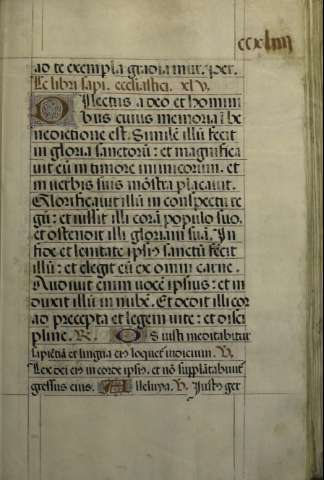 ccxliiij
ad te exempla gradiamur. per.
Lc̄ libri sapi. ecclīastici. xlv.
Dilectus a deo et homini
bus cuius memoria i be
nedictione est. Similē illū fecit
in gloria sanctorū: et magnifica
uit eū in timore inimicorum. et
in verbis suis mōstra placauit.
Glorificauit illū in conspectu re
gū: et iussit illi corā populo suo,
et ostendit illi gloriam suā. In
fide et lenitate ipsiꝰ sanctū fecit
illū: et elegit eū ex omni carne.
Audiuit enim uocē ipsius: et in
duxit illū in nubē. Et dedit illi cor
ad precepta et legem uite: et disci
pline. R. Os iusti meditabitur
sapiētiā et lingua eiꝰ loquet᷑ iudicium. V.
Lex dei eiꝰ in corde ipsiꝰ. et nō supplātabunt᷑
gressus eius. Alleluya. V. Iustꝰ ger